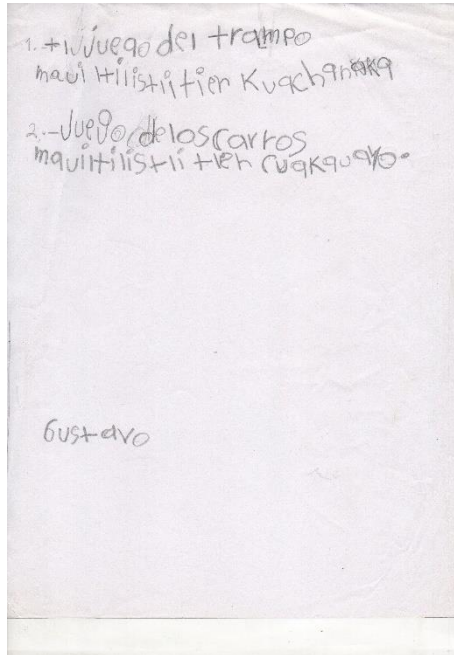 1. + juego del trampo
maui ltilistli tien Kuachanaka
2.-Juego de los carros
mauiltilistli tlen cuakquayo.
Gustavo